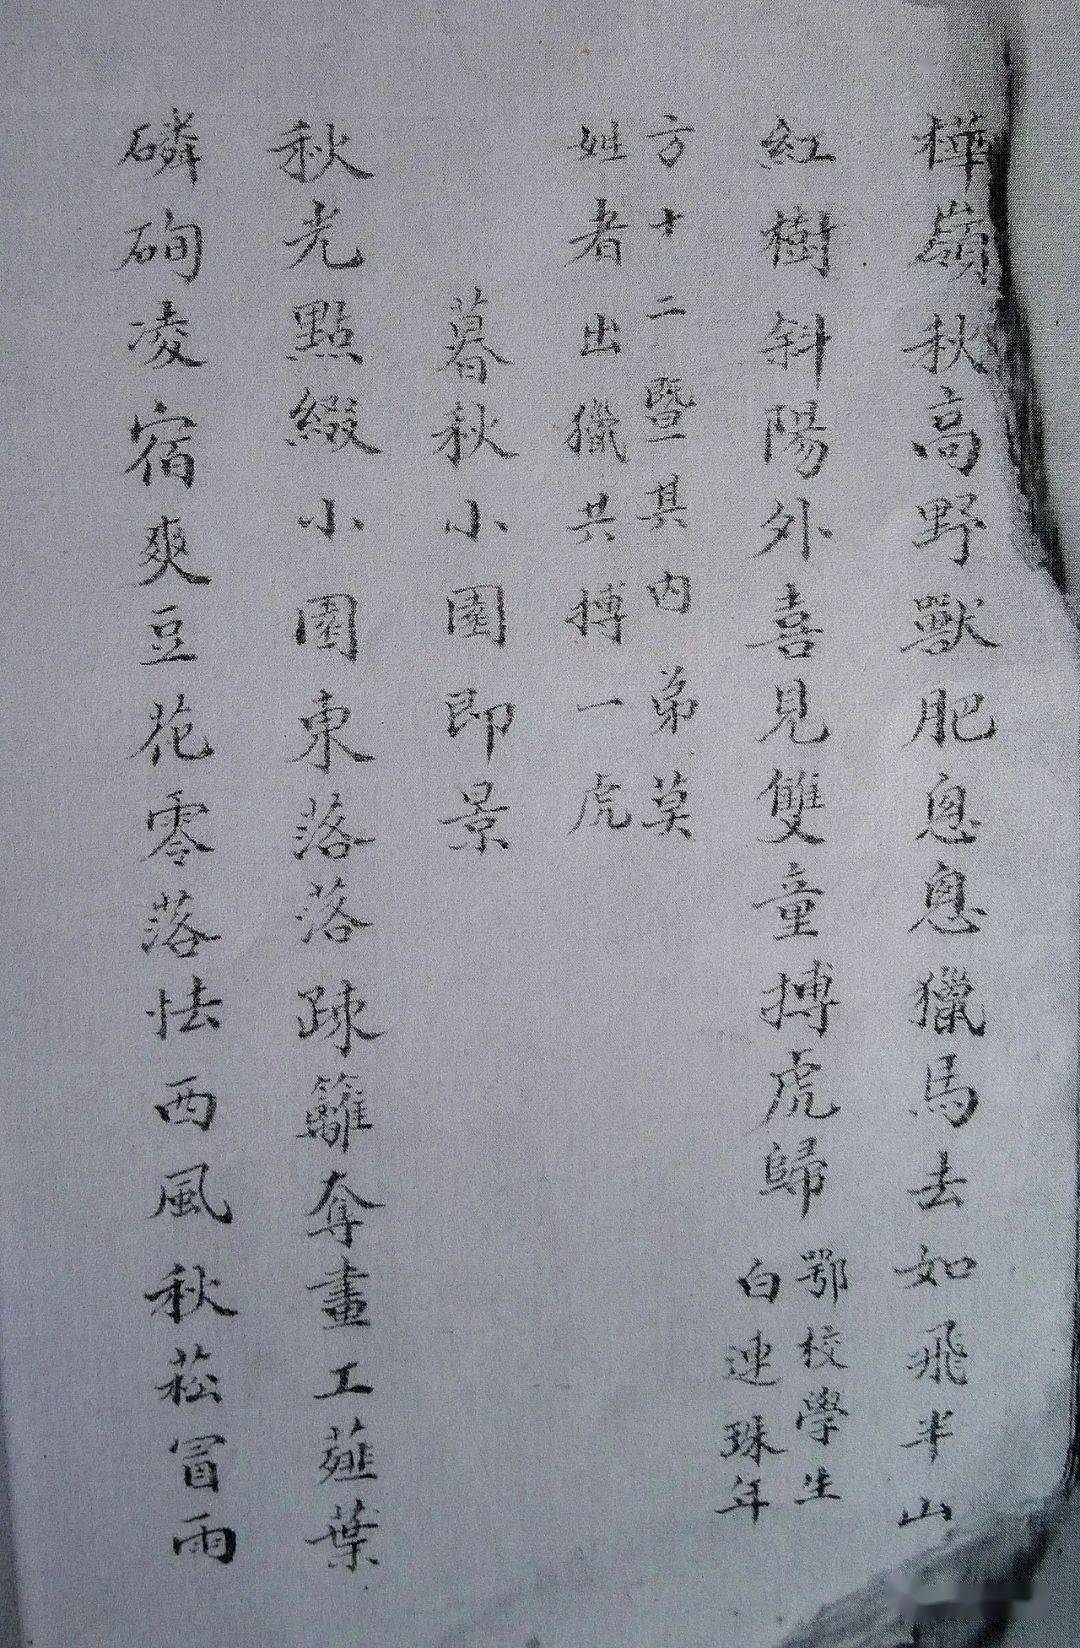 樺嶺秋高野獸肥息息獵馬去如飛半山
紅樹斜陽外喜見雙童搏虎歸
鄂校學生
白連珠年
方十二暨其內弟莫
姓者出獵共搏一虎
暮秋小園即景
秋光點綴小園東落落疎籬奪畫工薤葉
磷硐凌宿爽豆花零落怯西風秋菘冒雨